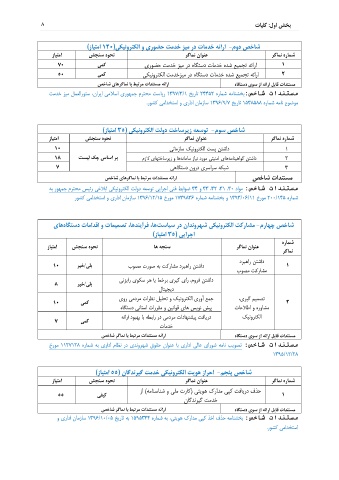 بخش اول: کلیات
۸
شاخص دوم- ارائه خدمات در میز خدمت حضوری و الکترونیکی (۱۲۰ امتیاز)
شماره نماگر عنوان نماگر نحوه سنجش امتیاز
۱ ارائه تجمیع شده خدمات دستگاه در میز خدمت حضوری کمی ۷۰
۲ ارائه تجمیع شده خدمات دستگاه در میزخدمت الکترونیکی کمی ۵۰
مستندات قابل ارائه از سوی دستگاه ارائه مستندات مرتبط با نماگر های شاخص
مستندات شاخص: بخشنامه شماره تاریخ ۱۳۹۷/۳/۱ ریاست محترم جمهوری اسلامی ایران، دستورالعمل میز خدمت
موضوع نامه شماره ۱۵۴۷۵۸۸ تاریخ ۱۳۹۶/۹/۷ سازمان اداری و استخدامی کشور.
شاخص سوم- توسعه زیرساخت دولت الکترونیکی (۳۵ امتیاز)
شماره نماگر عنوان نماگر نحوه سنجش امتیاز
۱ داشتن پست الکترونیک سازمانی بر اساس چک لیست ۱۰
۲ داشتن گواهینامه‌های امنیتی مورد نیاز سامانه‌ها و زیرساختهای لازم ۱۸
۳ شبکه سراسری درون دستگاهی ۷
مستندات شاخص ارائه مستندات مرتبط با نماگر های شاخص
مستندات شاخص: مواد ۲۰، ۲۱، ۳۲، ۳۳ و ۳۴ ضوابط فنی اجرایی توسعه دولت الکترونیکی ابلاغی رئیس محترم جمهور به
شماره ۲۰۰/۱۳۵ مورخ ۱۳۹۳/۰۶/۱۱ و بخشنامه شماره ۱۷۳۹۸۳۶ مورخ ۱۳۹۶/۱۲/۱۵ سازمان اداری و استخدامی کشور
شاخص چهارم- مشارکت الکترونیکی شهروندان در سیاست‌ها، فرآیندها، تصمیمات و اقدامات دستگاه‌های
اجرایی (۳۵ امتیاز)
شماره نماگر عنوان نماگر سنجه ها نحوه سنجش امتیاز
۱ داشتن راهبرد مشارکت مصوب داشتن راهبرد مشارکت به صورت مصوب بلی/خیر ۱۰
۲ تصمیم گیری، مشاوره و اطلاعات الکترونیک داشتن فروم، رأی گیری برخط یا هر سکوی رایزنی دیجیتال بلی/خیر ۸
جمع آوری الکترونیک و تحلیل نظرات مردمی روی پیش نویس های قوانین و مقررات استانی دستگاه کمی ۱۰
دریافت پیشنهادات مردمی در رابطه با بهبود ارائه خدمات کمی ۷
مستندات قابل ارائه از سوی دستگاه ارائه مستندات مرتبط با نماگر شاخص
مستندات شاخص: تصویب نامه شورای عالی اداری با عنوان حقوق شهروندی در نظام اداری به شماره ۱۱۲۷۱۲۸ مورخ
۱۳۹۵/۱۲/۲۸
شاخص پنجم- احراز هویت الکترونیکی خدمت گیرندگان (۵۵ امتیاز)
شماره نماگر عنوان نماگر نحوه سنجش امتیاز
۱ حذف دریافت کپی مدارک هویتی (کارت ملی و شناسنامه) از خدمت گیرندگان کیفی ۵۵
مستندات قابل ارائه از سوی دستگاه ارائه مستندات مرتبط با نماگر شاخص
مستندات شاخص: بخشنامه حذف اخذ کپی مدارک هویتی، به شماره ۱۵۹۵۳۳۴ به تاریخ ۱۳۹۶/۱۰/۰۵ سازمان اداری و
استخدامی کشور.